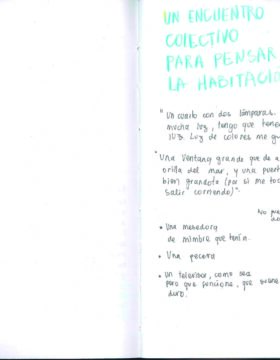 UN ENCUENTRO
COLECTIVO
PARA PENSAR
LA HABITACIÓ
"Un cuarto con dos lámparas.
mucha luz, tengo que tene
luz. Luz de colores me gu
"Una ventana grande que de a
orilla del mar, y una puert
bien grandota (por si me toc
salir corriendo)".
No pue
• Una mesedora
de mimbre que
• Una pecera
• Un televisor, como sea
pero que funcione, que
duro.